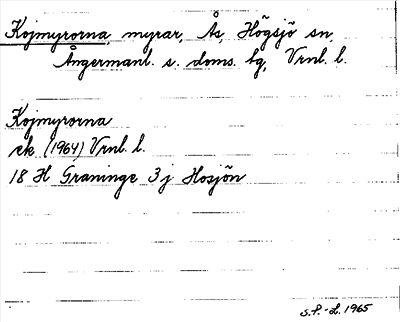 Kojmyrorna, myrar, Ås, Högsjö sn,
Ångermanl. s. doms. hg, Vrnl. l.
Kojmyrorna
ek (1964) Vrnl. l.
18 H Graninge 3 j Hosjön
S.P.-L. 1965